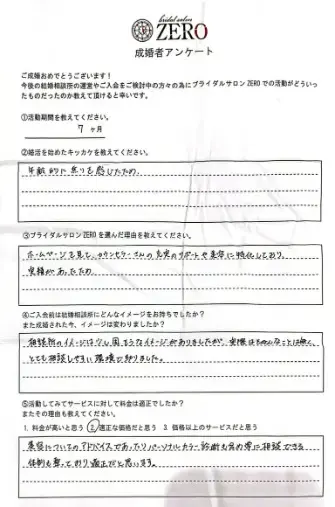 bridal salon
ZERO
成婚者アンケート
ご成婚おめでとうございます!
今後の結婚相談所の運営やご入会をご検討中の方々の為にブライダルサロンZEROでの活動がどういっ
たものだったのか教えて頂けると幸いです。
①活動期間を教えてください。
7 ヶ月
②婚活を始めたキッカケを教えてください。
年齢的に焦りを感じたため
③ブライダルサロンZEROを選んだ理由を教えてください。
ホームページを見て、カウンセラーさんの充実のサポートや美容に特化しており、
実績があったため
④ご入会前は結婚相談所にどんなイメージをお持ちでしたか?
また成婚された今、イメージは変わりましたか?
相談所のイメージは少し固そうなイメージがありましたが、実際はそんなことは無く、
とても相談しやすい環境でありました。
⑤活動してみてサービスに対して料金は適正でしたか?
またその理由も教えてください。
1. 料金が高いと思う 2. 適正な価格だと思う 3. 価格以上のサービスだと思う
美容についてのアドバイスであったりパーソナルカラー診断も含め常に相談できる
体制も整っており適正だと思います。